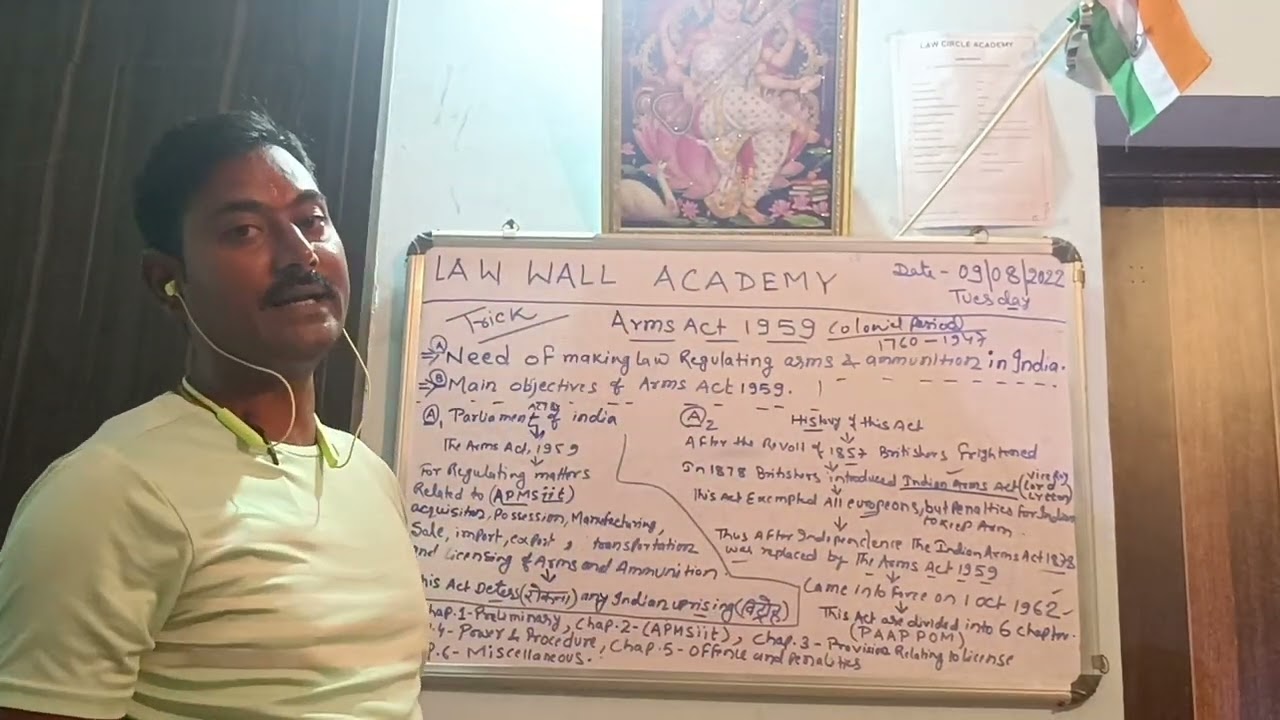 LAW CIRCLE ACADEMY
LAW WALL ACADEMY
Date - 09/08/2022
Tuesday
Trick
Arms Act 1959 (Colonial Period)
1760 - 1947
⇒ Ⓐ Need of making law Regulating arms & ammunition in India.
⇒ Ⓑ Main objectives of Arms Act 1959.
Ⓐ1 Parliament of india
↓
The Arms Act, 1959
↓
For Regulating matters
Related to (APMSiit)
acquisition, Possession, Manufacturing,
Sale, import, export, transportation
and Licensing of Arms and Ammunition.
↓
his Act Deters (रोकना) any Indian uprising (विद्रोह)
Ⓐ2 History of this Act
↓
After the Revolt of 1857 Britishers frightened
↓
In 1878 Britishers introduced Indian Arms Act (Vice Roy Lord Lytton)
↓
This Act Exempted All europeons, but Penalties for Indian
to keep Arm.
↓
Thus After Independence The Indian Arms Act 1878
was replaced by The Arms Act 1959
↓
Came into force on 1 Oct 1962-
↓
This Act are divided into 6 chapter.
(PAAPPOM)
hap.1-Preliminary, Chap.2-(APMSiit), Chap.3- Provision Relating to License
.4- Power & Procedure, Chap.5- Offence and Penalties
P.6- Miscellaneous.